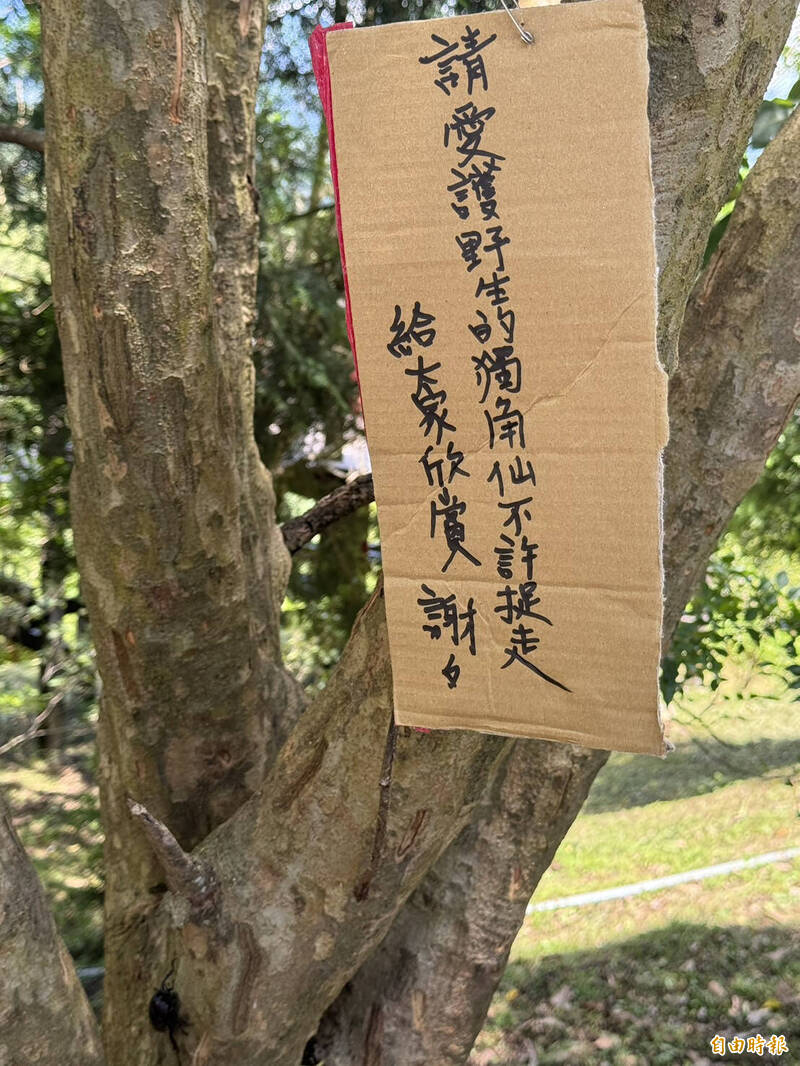 請愛護野生的獨角仙不許捉走
給大家欣賞 謝々
自由時報